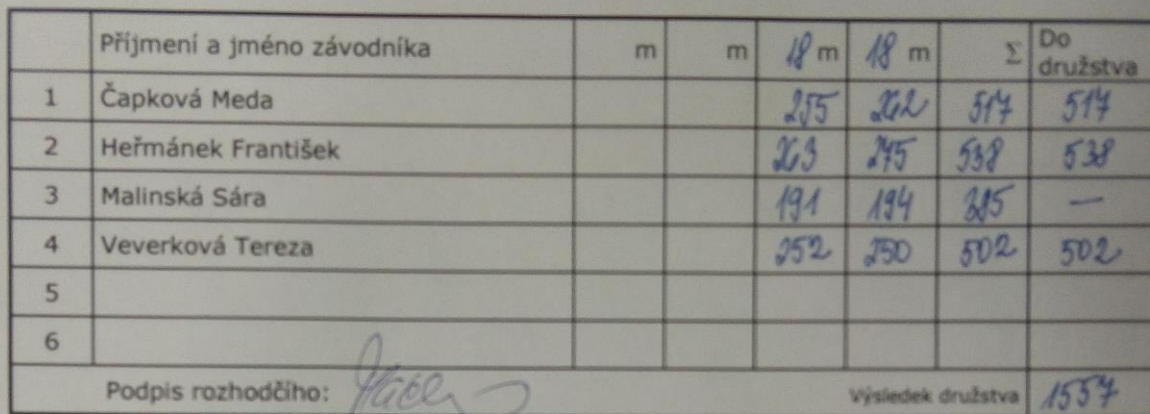 Příjmení a jméno závodníka m m 18 m 18 m Σ Do družstva
1 Čapková Meda 255 262 517 517
2 Heřmánek František 263 275 538 538
3 Malinská Sára 191 194 385 —
4 Veverková Tereza 252 250 502 502
5
6
Podpis rozhodčího: Výsledek družstva 1557